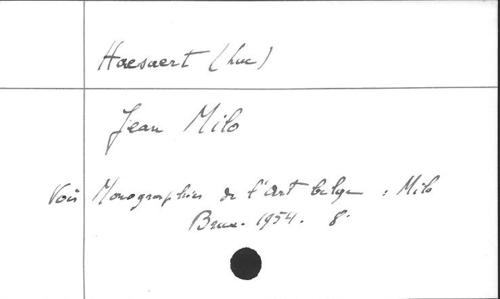 Haesaert (Luc)
Jean Milo
Voir Monographies de l'Art belge : Milo
Brux. 1954. 8°